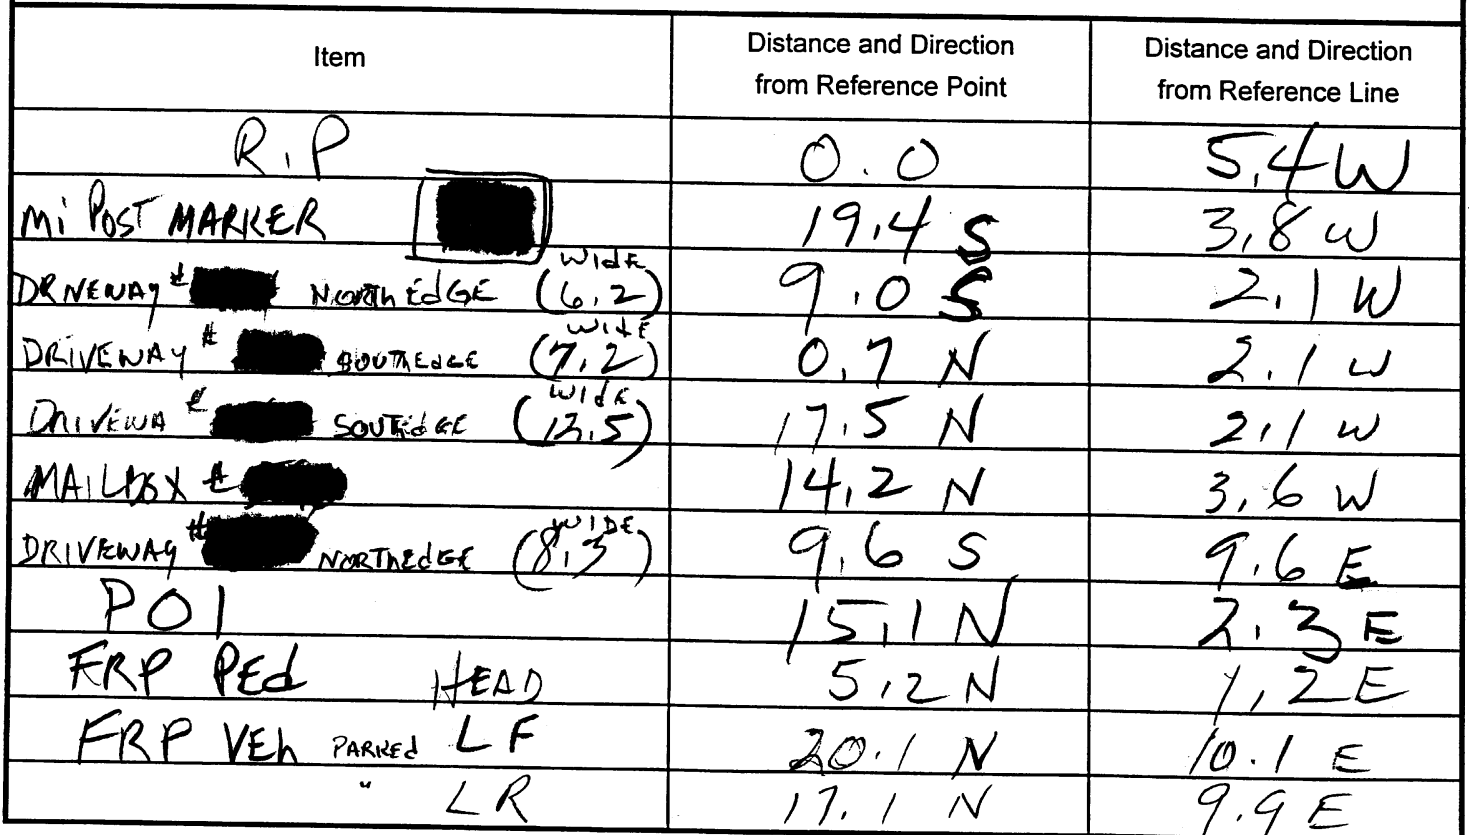 Item Distance and Direction from Reference Point Distance and Direction from Reference Line
R.P 0.0 5.4 W
Mi Post MARKER 19.4 S 3.8 W
DRIVEWAY # NORTH EdGE (6.2) WIdE 9.0 S 2.1 W
DRIVEWAY # SOUTHEdGE (7.2) WIdE 0.7 N 2.1 W
DRIVEWA # SOUTEdGE WIdE 17.5 N 2.1 W
MAILBOX # 14.2 N 3.6 W
DRIVEWAY # NORTHEdGE (8.3) WIDE 9.6 S 9.6 E
POI 15.1 N 2.3 E
FRP PEd HEAD 5.2 N 1.2 E
FRP VEh PARKEd LF 20.1 N 10.1 E
" LR 17.1 N 9.9 E